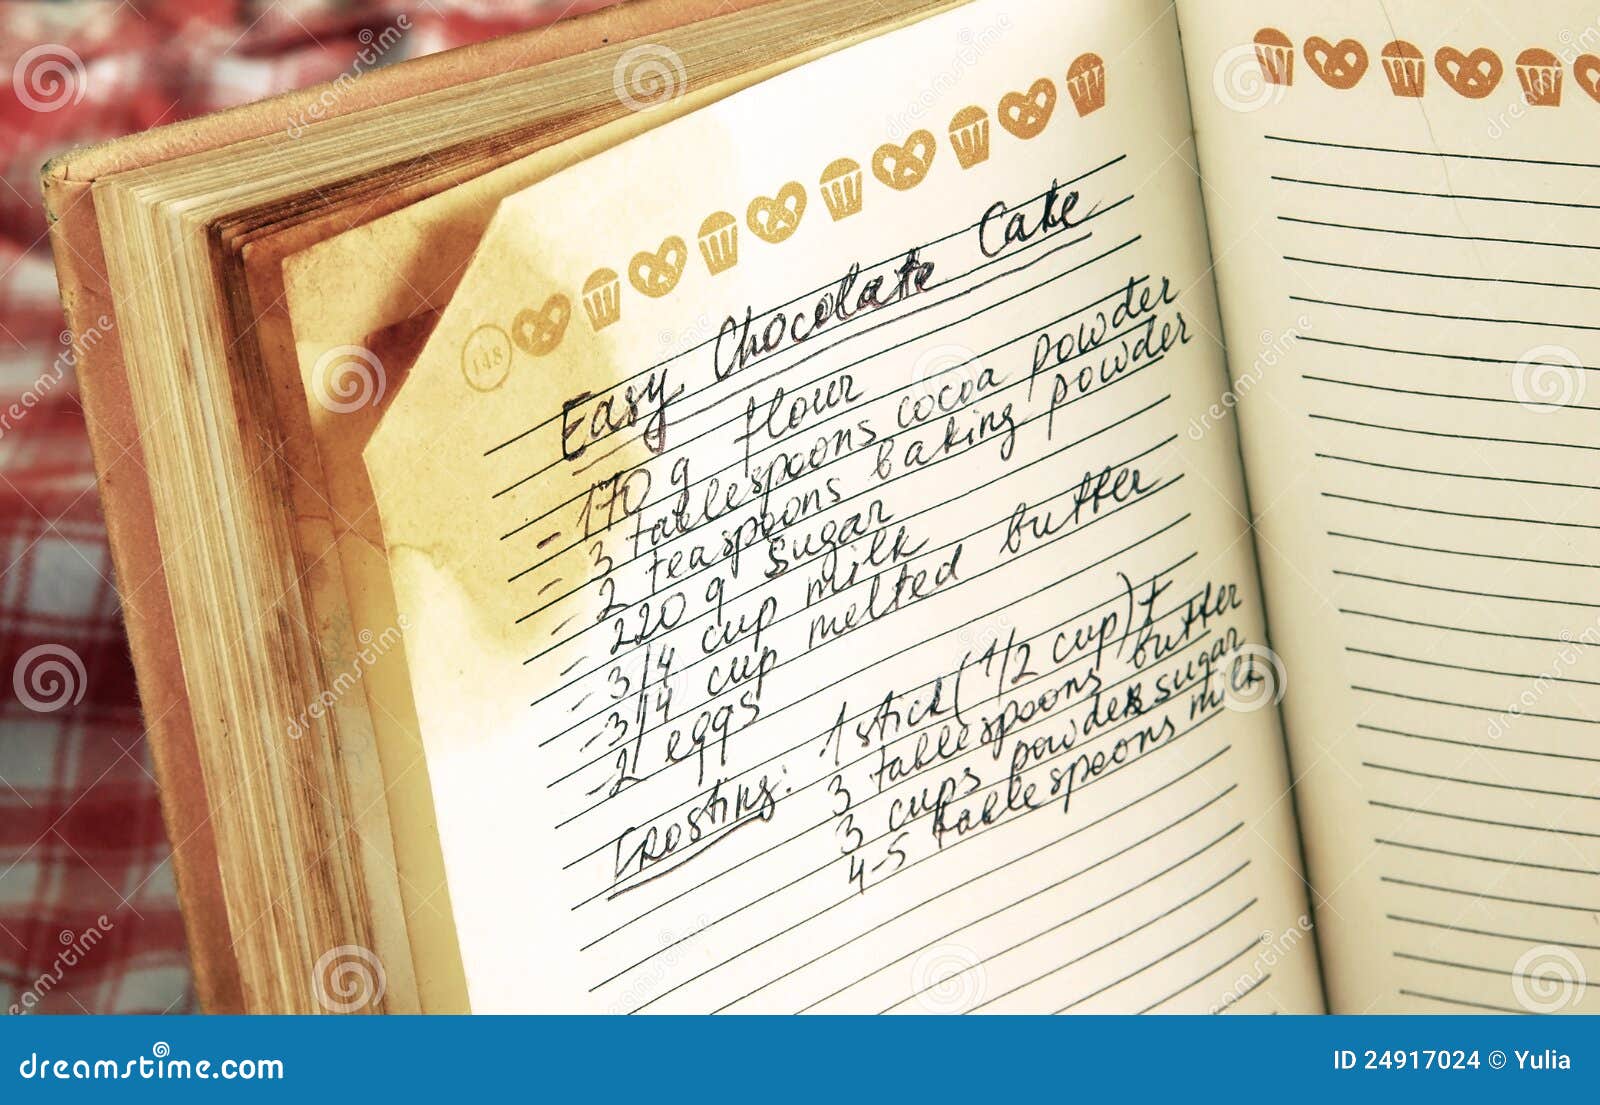 148
Easy Chocolate Cake
- 170 g flour
- 3 tablespoons cocoa powder
- 2 teaspoons baking powder
- 220 g sugar
- 3/4 cup milk
- 3/4 cup melted butter
- 2 eggs
Frosting: 1 stick (1/2 cup) +
3 tablespoons butter
3 cups powder sugar
4-5 tablespoons milk
dreamstime.com
ID 24917024 © Yulia